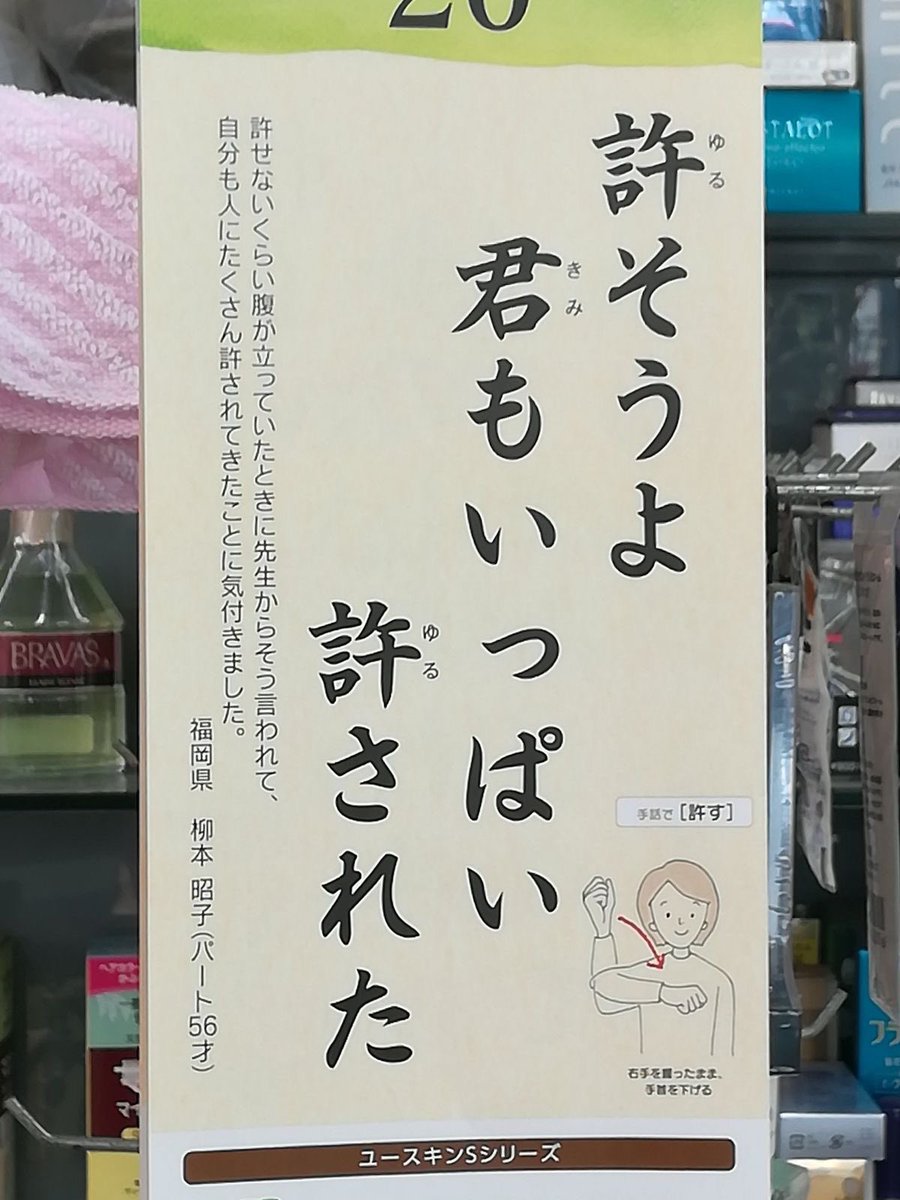 20
許そうよ
ゆる
君もいっぱい
きみ
許された
ゆる
許せないくらい腹が立っていたときに先生からそう言われて、
自分も人にたくさん許されてきたことに気付きました。
福岡県 柳本 昭子(パート56才)
手話で[許す]
右手を握ったまま、
手首を下げる
ユースキンSシリーズ
BRAVAS